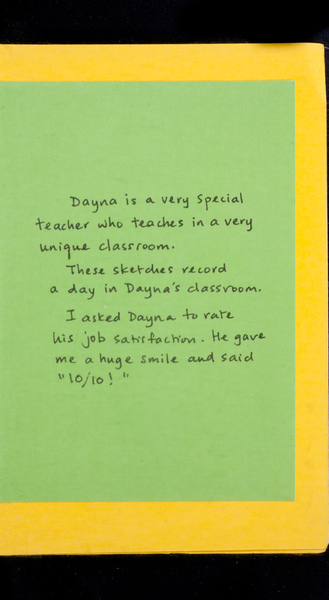 Dayna is a very special
teacher who teaches in a very
unique classroom.
These sketches record
a day in Dayna's classroom.
I asked Dayna to rate
his job satisfaction. He gave
me a huge smile and said
"10/10! "